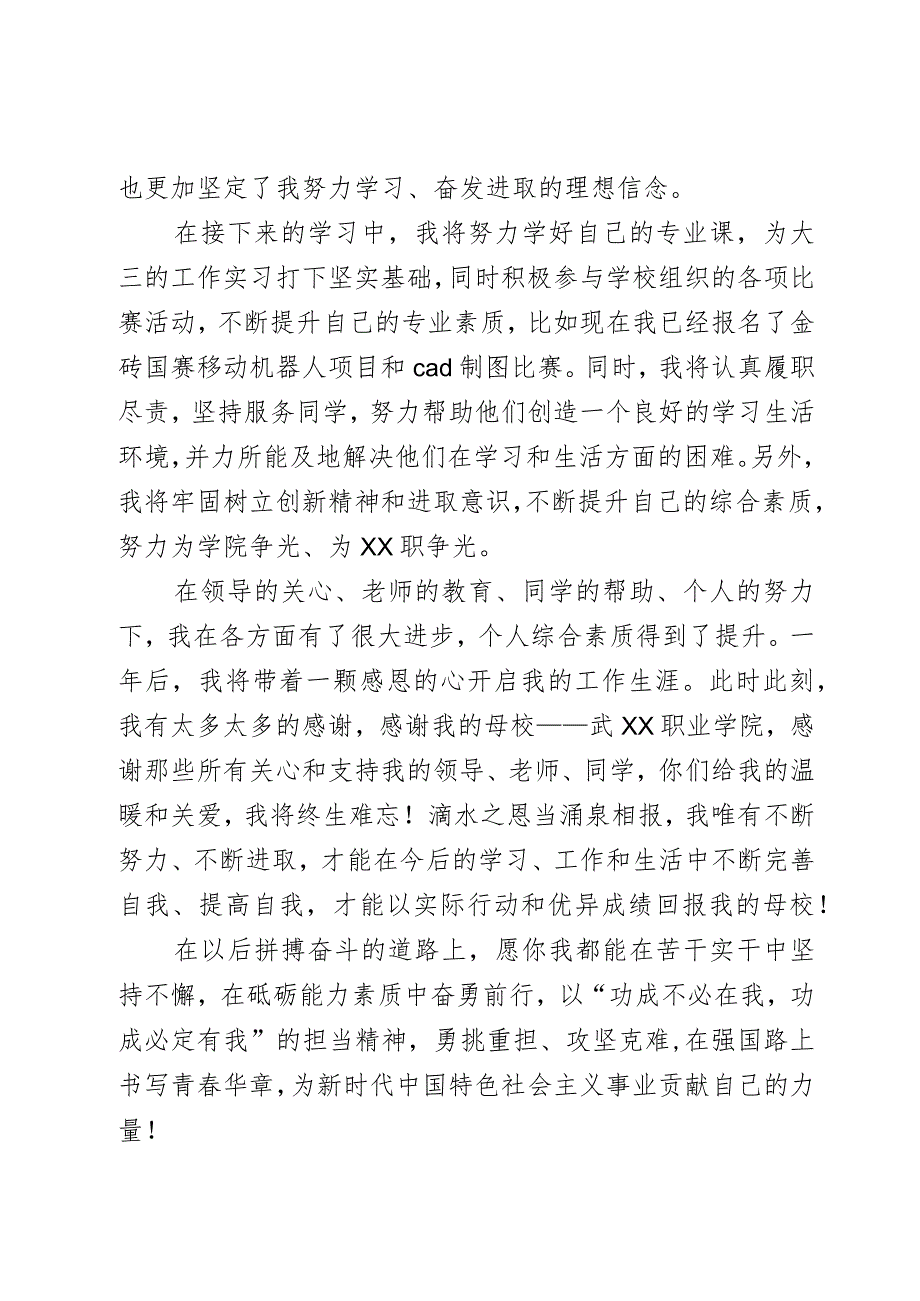 也更加坚定了我努力学习、奋发进取的理想信念。
在接下来的学习中，我将努力学好自己的专业课，为大
三的工作实习打下坚实基础，同时积极参与学校组织的各项比
赛活动，不断提升自己的专业素质，比如现在我已经报名了金
砖国赛移动机器人项目和 cad 制图比赛。同时，我将认真履职
尽责，坚持服务同学，努力帮助他们创造一个良好的学习生活
环境，并力所能及地解决他们在学习和生活方面的困难。另外，
我将牢固树立创新精神和进取意识，不断提升自己的综合素质，
努力为学院争光、为 XX 职争光。
在领导的关心、老师的教育、同学的帮助、个人的努力
下，我在各方面有了很大进步，个人综合素质得到了提升。一
年后，我将带着一颗感恩的心开启我的工作生涯。此时此刻，
我有太多太多的感谢，感谢我的母校——武 XX 职业学院，感
谢那些所有关心和支持我的领导、老师、同学，你们给我的温
暖和关爱，我将终生难忘！滴水之恩当涌泉相报，我唯有不断
努力、不断进取，才能在今后的学习、工作和生活中不断完善
自我、提高自我，才能以实际行动和优异成绩回报我的母校！
在以后拼搏奋斗的道路上，愿你我都能在苦干实干中坚
持不懈，在砥砺能力素质中奋勇前行，以“功成不必在我，功
成必定有我”的担当精神，勇挑重担、攻坚克难,在强国路上
书写青春华章，为新时代中国特色社会主义事业贡献自己的力
量！